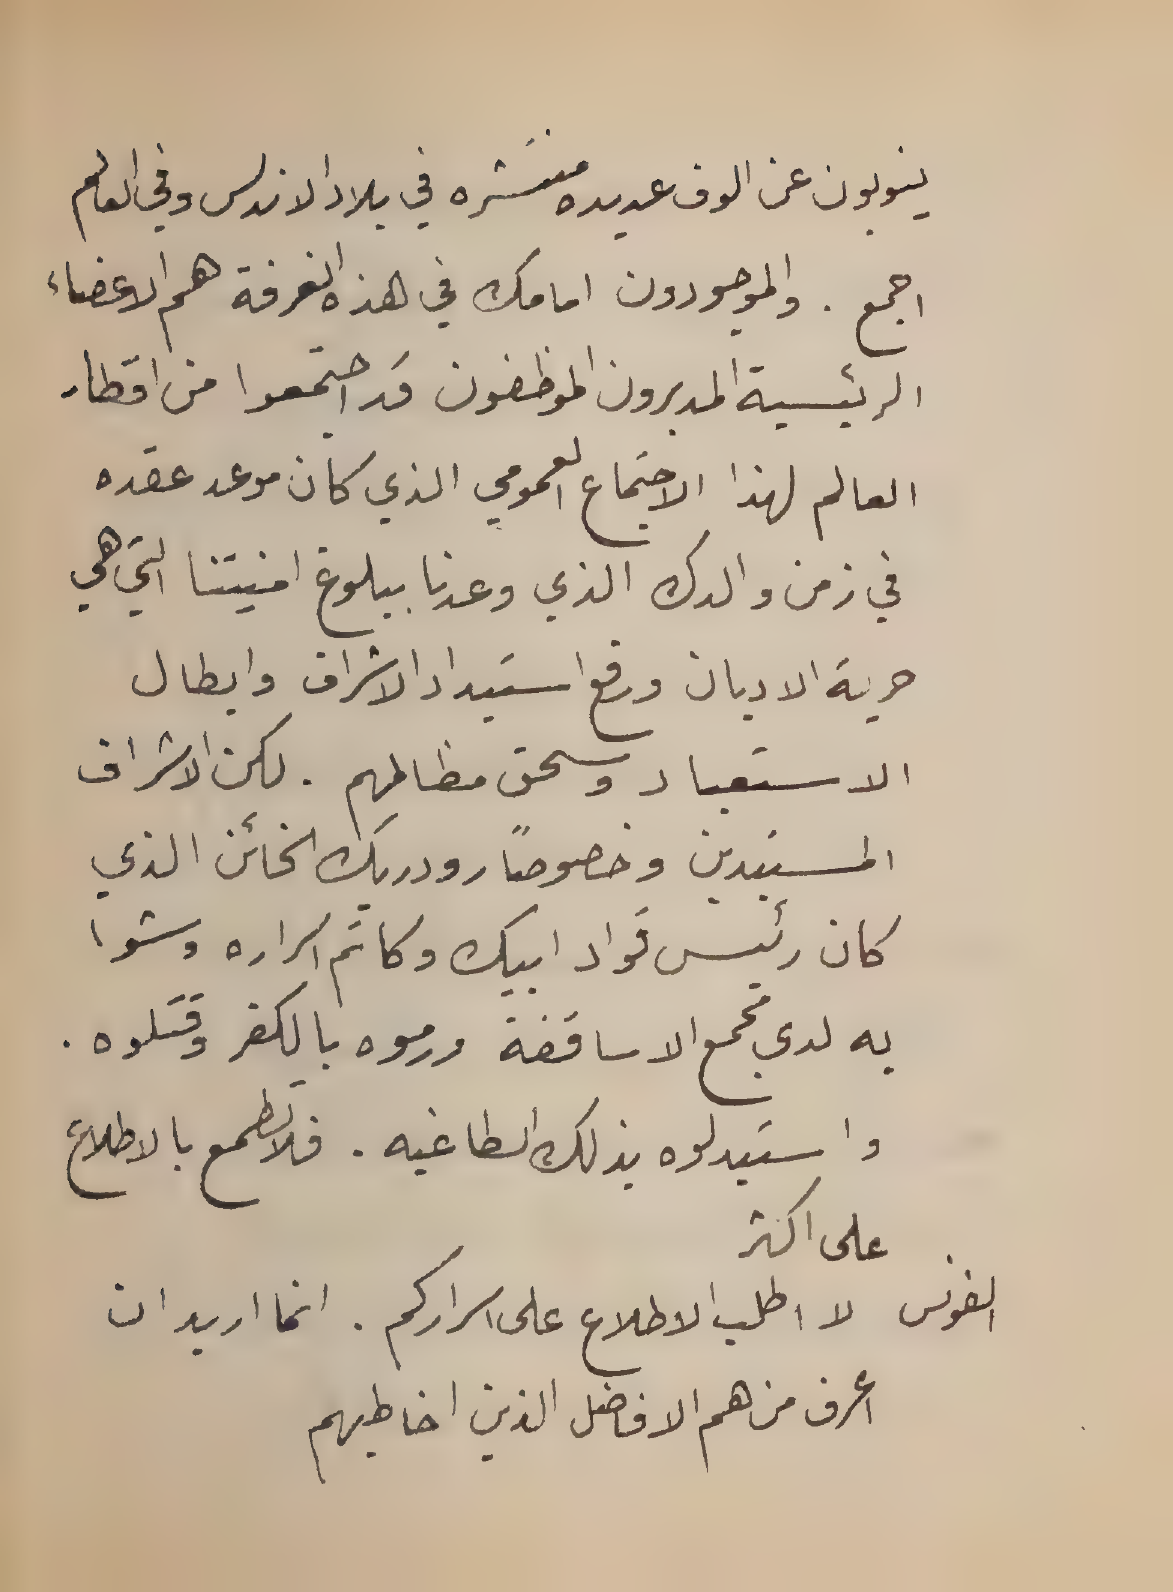 ينوبون عن الوف عديده منتشره في بلاد الاندلس وفي العالم
اجمع . والموجودون امامك في هذه الغرفة هم الاعضاء
الرئيسية المديرون الموظفون قد اجتمعوا من اقطار
العالم لهذا الاجتماع العمومي الذي كان موعد عقده
في زمن والدك الذي وعدنا ببلوغ امنيتنا التي هي
حرية الاديان ورفع استبداد الاشراف وابطال
الاستعباد وسحق مظالمهم . لكن الاشراف
المستبدين وخصوصاً رودريك الخائن الذي
كان رئيس قواد ابيك وكاتم اسراره وشوا
به لدى مجمع الاساقفة ورموه بالكفر وقتلوه .
واستبدلوه بذلك الطاغيه . فلا تطمع بالاطلاع
على اكثر
الفونس لا اطلب الاطلاع على اسراركم . انما اريد ان
اعرف من هم الافاضل الذين اخاطبهم